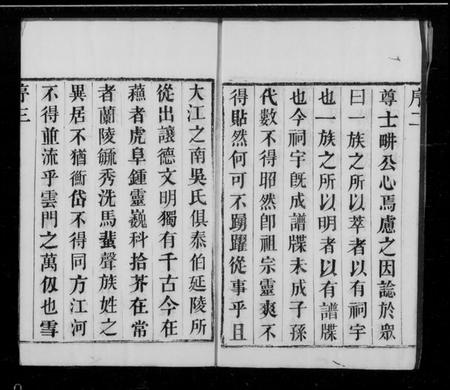 序二
尊士畊公心焉慮之因謀於眾
曰一族之所以萃者以有祠宇
也一族之所以明者以有譜牒
也今祠宇既成譜牒未成子孫
代數不得昭然卽祖宗靈爽不
得貼然何可不踴躍從事乎且
大江之南吳氏俱泰伯延陵所
從出讓德文明獨有千古今在
蘓者虎阜鍾靈巍科拾芥在常
者蘭陵毓秀洗馬蜚聲族姓之
異居不猶衡岱不得同方江河
不得並流乎雲門之萬仭也雪
序三